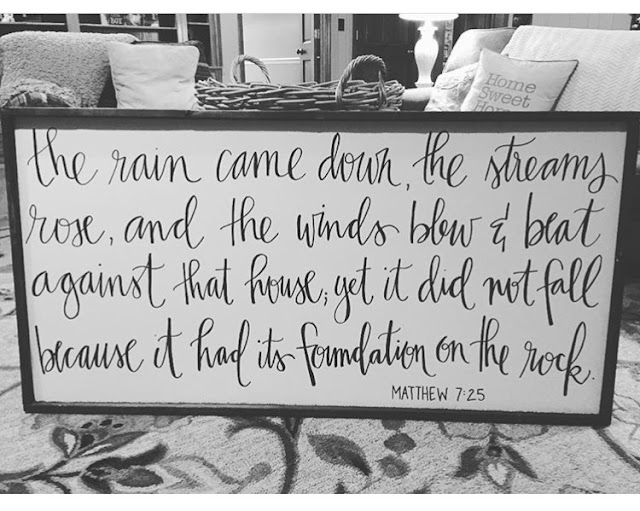 Home
Sweet
Home
the rain came down, the streams
rose, and the winds blew & beat
against that house; yet it did not fall
because it had its foundation on the rock.
MATTHEW 7:25